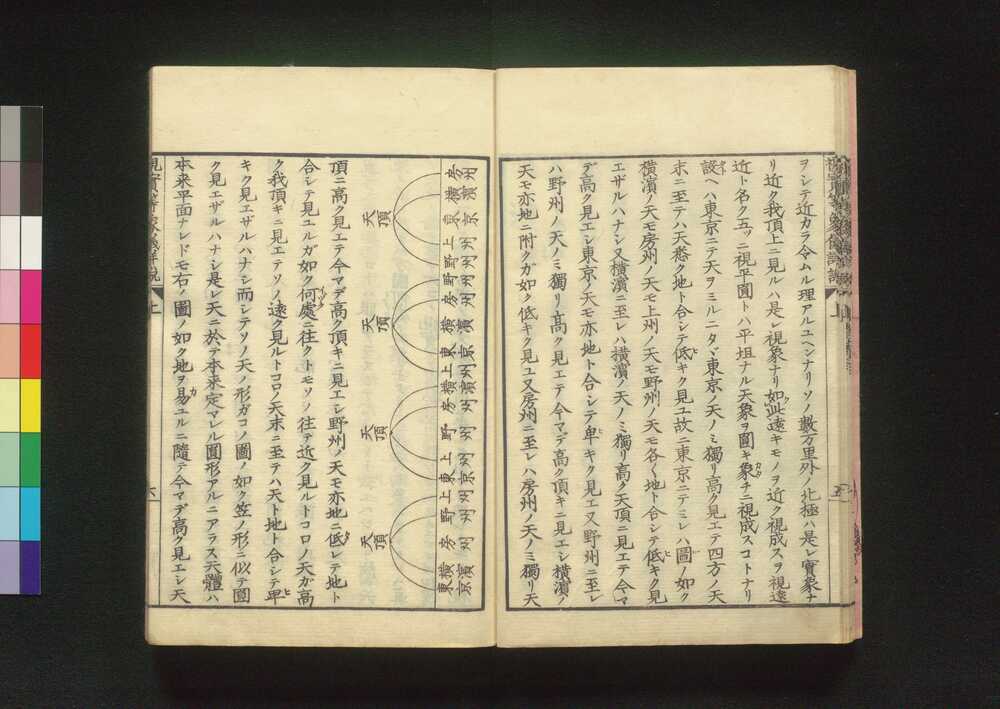 ヲシテ近カラ令ムル理アルユヘンナリソノ數万里外ノ北極ハ是レ實象ナ
リ近ク我頂上ニ見ルハ是レ視象ナリ如此遠キモノヲ近ク視成スヲ視遠
近ト名ク五ツニ視平圓トハ平坦ナル天象ヲ圓キ象チニ視成スコトナリ
設ヘハ東京ニテ天ヲミルニタヾ東京ノ天ノミ獨リ高ク見エテ四方ノ天
末ニ至テハ天悉ク地ト合シテ低キク見ユ故ニ東京ニテミレハ圖ノ如ク
横濱ノ天モ房州ノ天モ上州ノ天モ野州ノ天モ各〻地ト合シテ低キク見
エザルハナシ又横濱ニ至レハ横濱ノ天ノミ獨リ高ク天頂ニ見エテ今マ
デ高ク見エシ東京ノ天モ亦地ト合シテ卑キク見エ又野州ニ至レ
ハ野州ノ天ノミ獨リ高ク見エテ今マデ高ク頂キニ見エシ横濱ノ
天モ亦地ニ附クガ如ク低キク見ユ又房州ニ至レハ房州ノ天ノミ獨リ天
房州
横濱
東京
上州
野州
天頂
房州
横濱
東京
上州
天頂
横濱
房州
野州
上州
天頂
東京
上州
野州
房州
横濱
東京
天頂
頂ニ高ク見エテ今マデ高ク頂キニ見エシ野州ノ天モ亦地ニ低レテ地ト
合シテ見エルガ如ク何處ニ往クトモソノ往テ近ク見ルトコロノ天ガ高
ク我頂キニ見エテソノ遠ク見ルトコロノ天末ニ至テハ天ト地ト合シテ卑
キク見エザルハナシ而シテソノ天ノ形ガコノ圖ノ如ク笠ノ形ニ似テ圓
ク見エザルハナシ是レ天ニ於テ本来定マレル圓形アルニアラス天體ハ
本来平面ナレドモ右ノ圖ノ如ク地ヲ易ユルニ隨テ今マデ高ク見エシ天
上
六